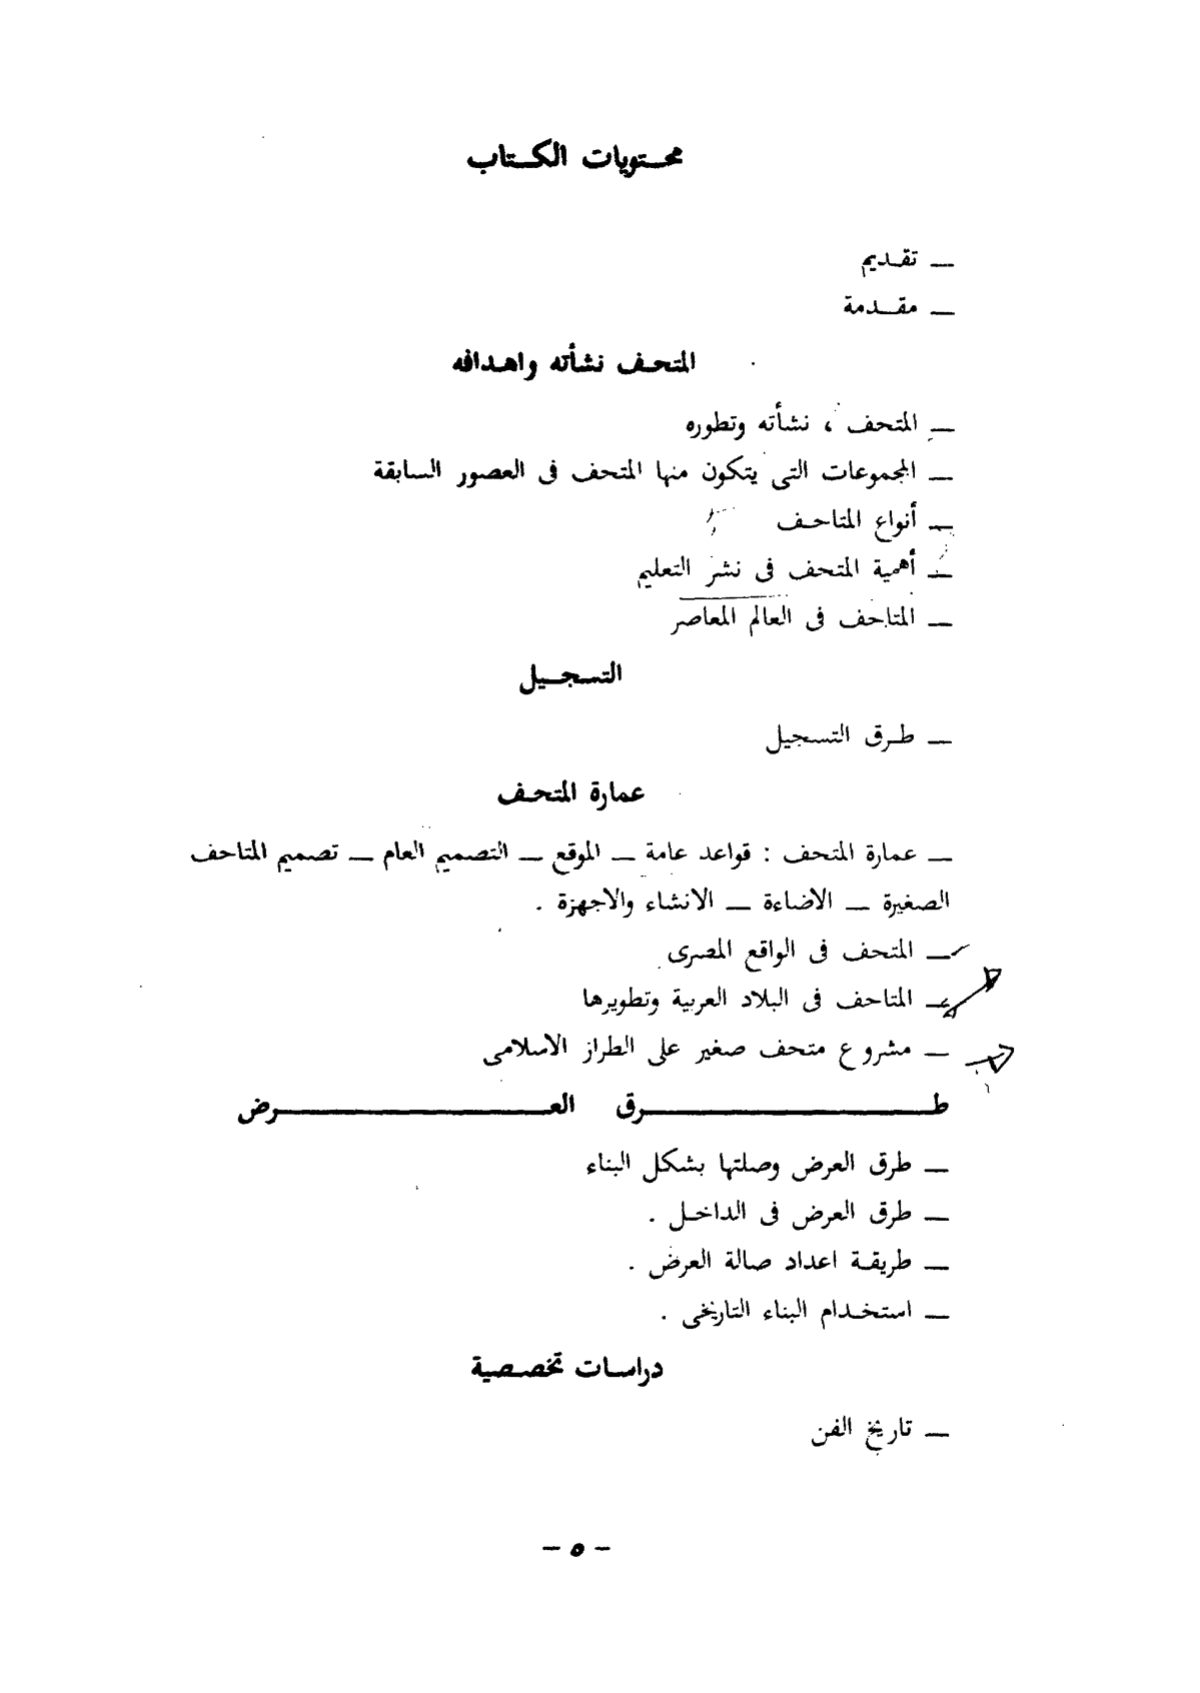 محتويات الكتاب
— تقديم
— مقدمة
المتحف نشأته واهدافه
— المتحف ، نشأته وتطوره
— المجموعات التى يتكون منها المتحف فى العصور السابقة
— أنواع المتاحف
— أهمية المتحف فى نشر التعليم
— المتاحف فى العالم المعاصر
التسجيل
— طرق التسجيل
عمارة المتحف
— عمارة المتحف : قواعد عامة — الموقع — التصميم العام — تصميم المتاحف
الصغيرة — الاضاءة — الانشاء والاجهزة .
— المتحف فى الواقع المصرى
— المتاحف فى البلاد العربية وتطويرها
— مشروع متحف صغير على الطراز الاسلامى
طرق العرض
— طرق العرض وصلتها بشكل البناء
— طرق العرض فى الداخل .
— طريقة اعداد صالة العرض .
— استخدام البناء التاريخى .
دراسات تخصصية
— تاريخ الفن
– ٥ –